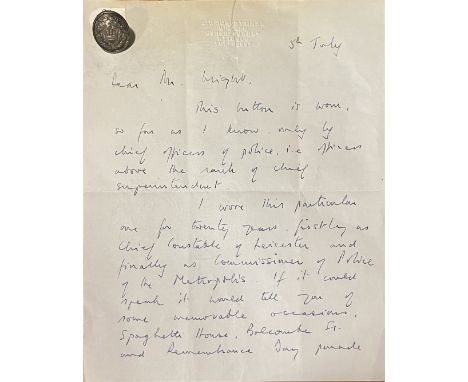 5th July
Dear Mr. Wright.
This button is worn,
so far as I know, only by
chief officers of police, i.e officers
above the rank of chief
superintendent
I wore this particular
one for twenty years. firstly as
Chief Constable of Leicester and
finally as Commissioner of Police
of the Metropolis. If it could
speak it would tell you of
some memorable occasions,
Spaghetti House, Balcombe St.
and Remembrance Day parade